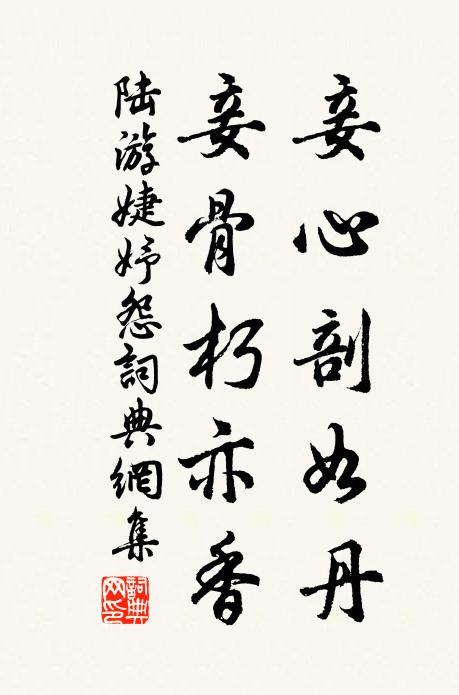 妾心剖如丹
妾骨朽亦香
陆游婕妤怨詞典網集
詞典網印